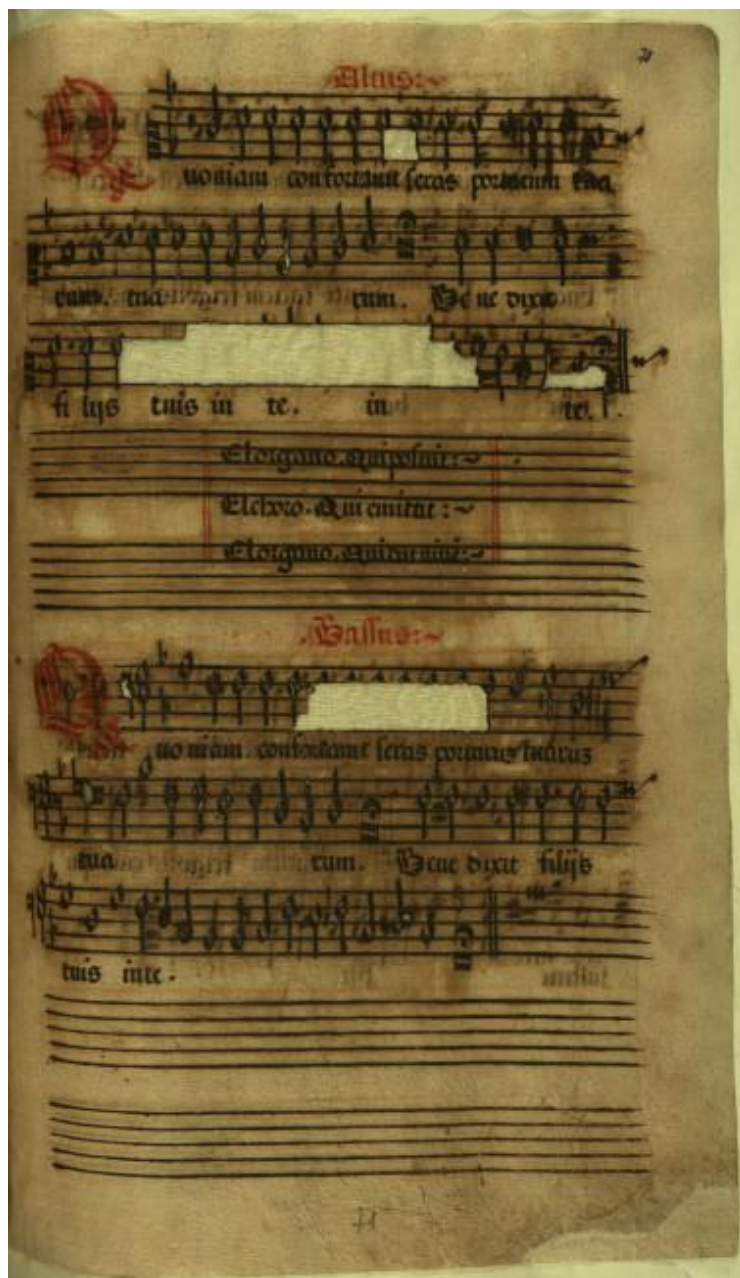 Altus:~
Quoniam confortauit seras portarum tua
rum. tua rum. Be ne dixit
fi lijs tuis in te. in te.
El organo. Qui posuit:~
El choro. Qui emittit:~
El organo.
Bassus:~
Quo niam confortauit seras portarus tuarus
tua rum. Bene dixit filijs
tuis inte.